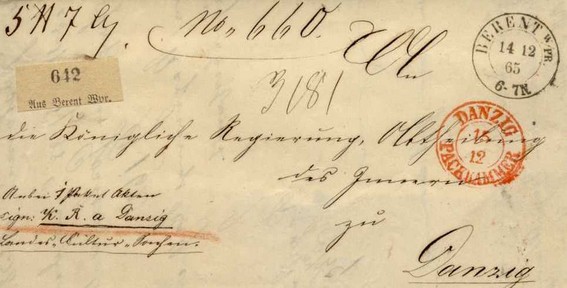 5 ℔ 7 Lg.
No. 660.
BERENT W/PR.
14 12
65
6-7N.
642
Aus Berent Wpr.
3181
DANZIG
15
12
PACKKAMMER
die Königliche Regierung, Abtheilung
des Innern
zu
Danzig
Anbei 1 Paket Akten
sign: K. R. a Danzig
Landes-Cultur-Sachen.